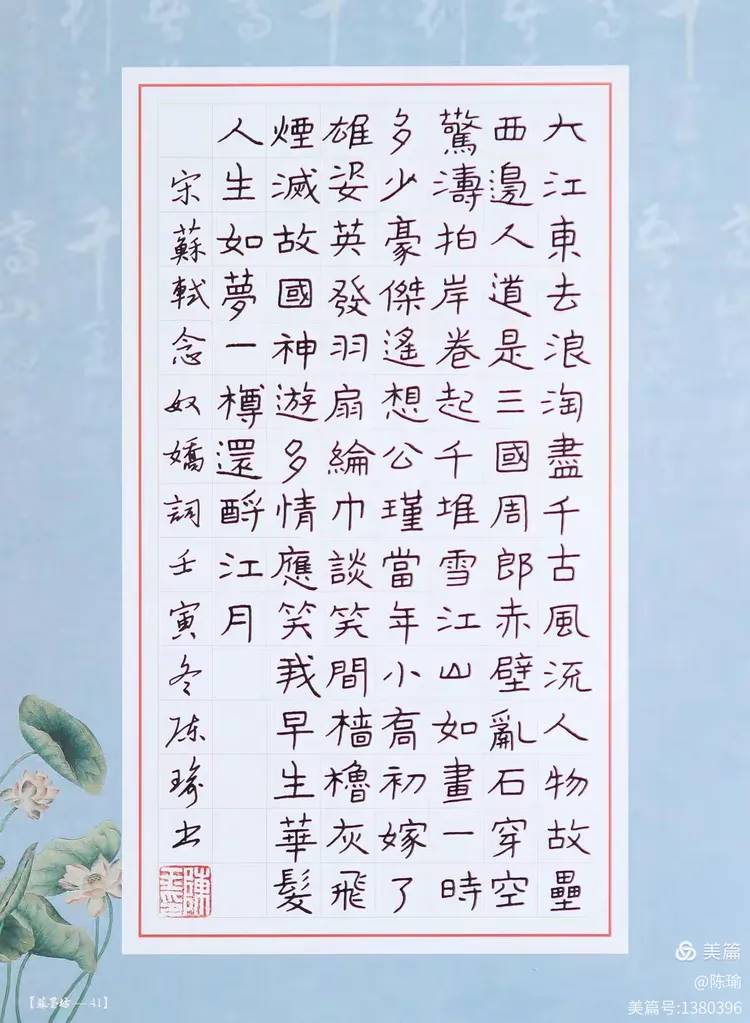 大江東去浪淘盡千古風流人物故壘
西邊人道是三國周郎赤壁亂石穿空
驚濤拍岸卷起千堆雪江山如畫一時
多少豪傑遙想公瑾當年小喬初嫁了
雄姿英發羽扇綸巾談笑間檣櫓灰飛
煙滅故國神遊多情應笑我早生華髮
人生如夢一樽還酹江月
宋蘇軾念奴嬌詞壬寅冬陈瑜书
【蘇墨坊—41】
美篇
@陈瑜
美篇号:1380396